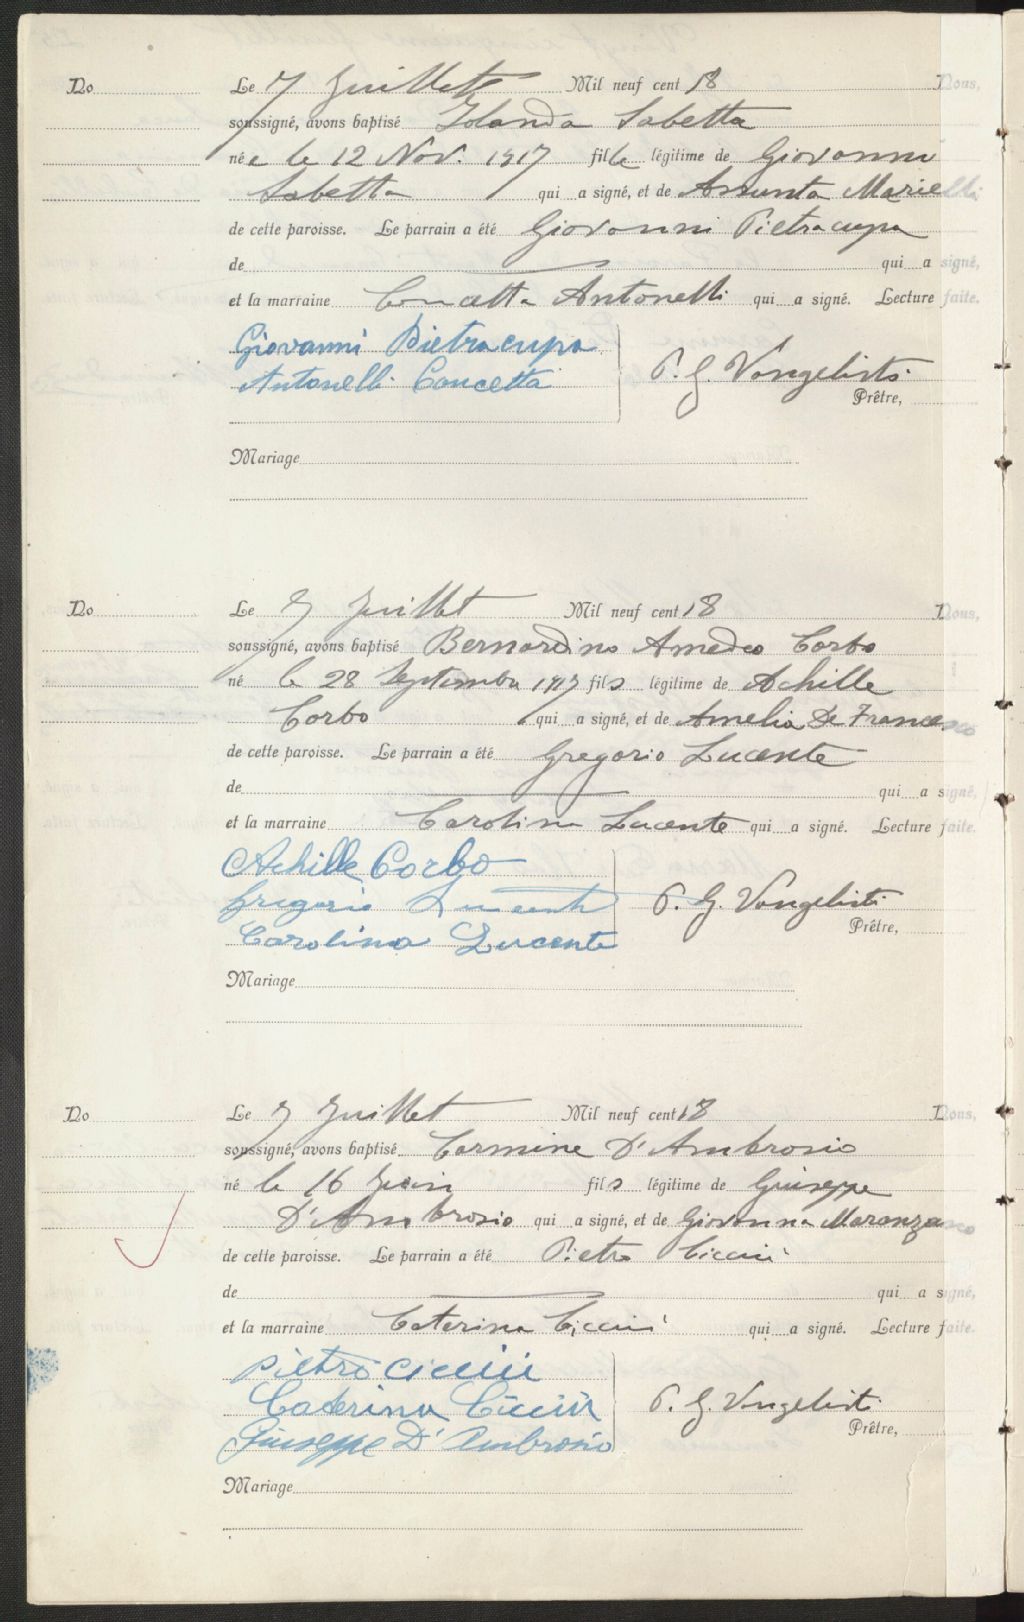 No Le 7 Juillet Mil neuf cent 18 Nous,
soussigné, avons baptisé Iolanda Sabetta
née le 12 Nov. 1917 fille légitime de Giovanni
Sabetta qui a signé, et de Assunta Marielli
de cette paroisse. Le parrain a été Giovanni Pietracupa
de qui a signé,
et la marraine Concetta Antonelli qui a signé. Lecture faite.
Giovanni Pietracupa
Antonelli Concetta
P. G. Vangelisti
Prêtre,
Mariage
No Le 7 Juillet Mil neuf cent 18 Nous,
soussigné, avons baptisé Bernardino Amedeo Corbo
né le 28 Septembre 1917 fils légitime de Achille
Corbo qui a signé, et de Amelia De Francesco
de cette paroisse. Le parrain a été Gregorio Lucente
de qui a signé,
et la marraine Carolina Lucente qui a signé. Lecture faite.
Achille Corbo
Gregorio Lucente
Carolina Lucente
P. G. Vangelisti
Prêtre,
Mariage
No Le 7 Juillet Mil neuf cent 18 Nous,
soussigné, avons baptisé Carmine D'Ambrosio
né le 16 Juin fils légitime de Giuseppe
D'Ambrosio qui a signé, et de Giovanna Maranzano
de cette paroisse. Le parrain a été Pietro Ciccini
de qui a signé,
et la marraine Caterina Ciccini qui a signé. Lecture faite.
Pietro
Caterina
Giuseppe D'Ambrosio
P. G. Vangelisti
Prêtre,
Mariage